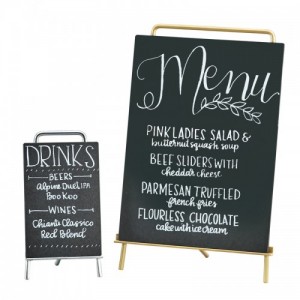 DRINKS
BEERS
Alpine Duet IPA
Boo Koo
WINES
Chianti Classico
Red Blend
Menu
PINK LADIES SALAD &
butternut squash soup
BEEF SLIDERS WITH
cheddar cheese
PARMESAN TRUFFLED
french fries
FLOURLESS CHOCOLATE
cake with ice cream